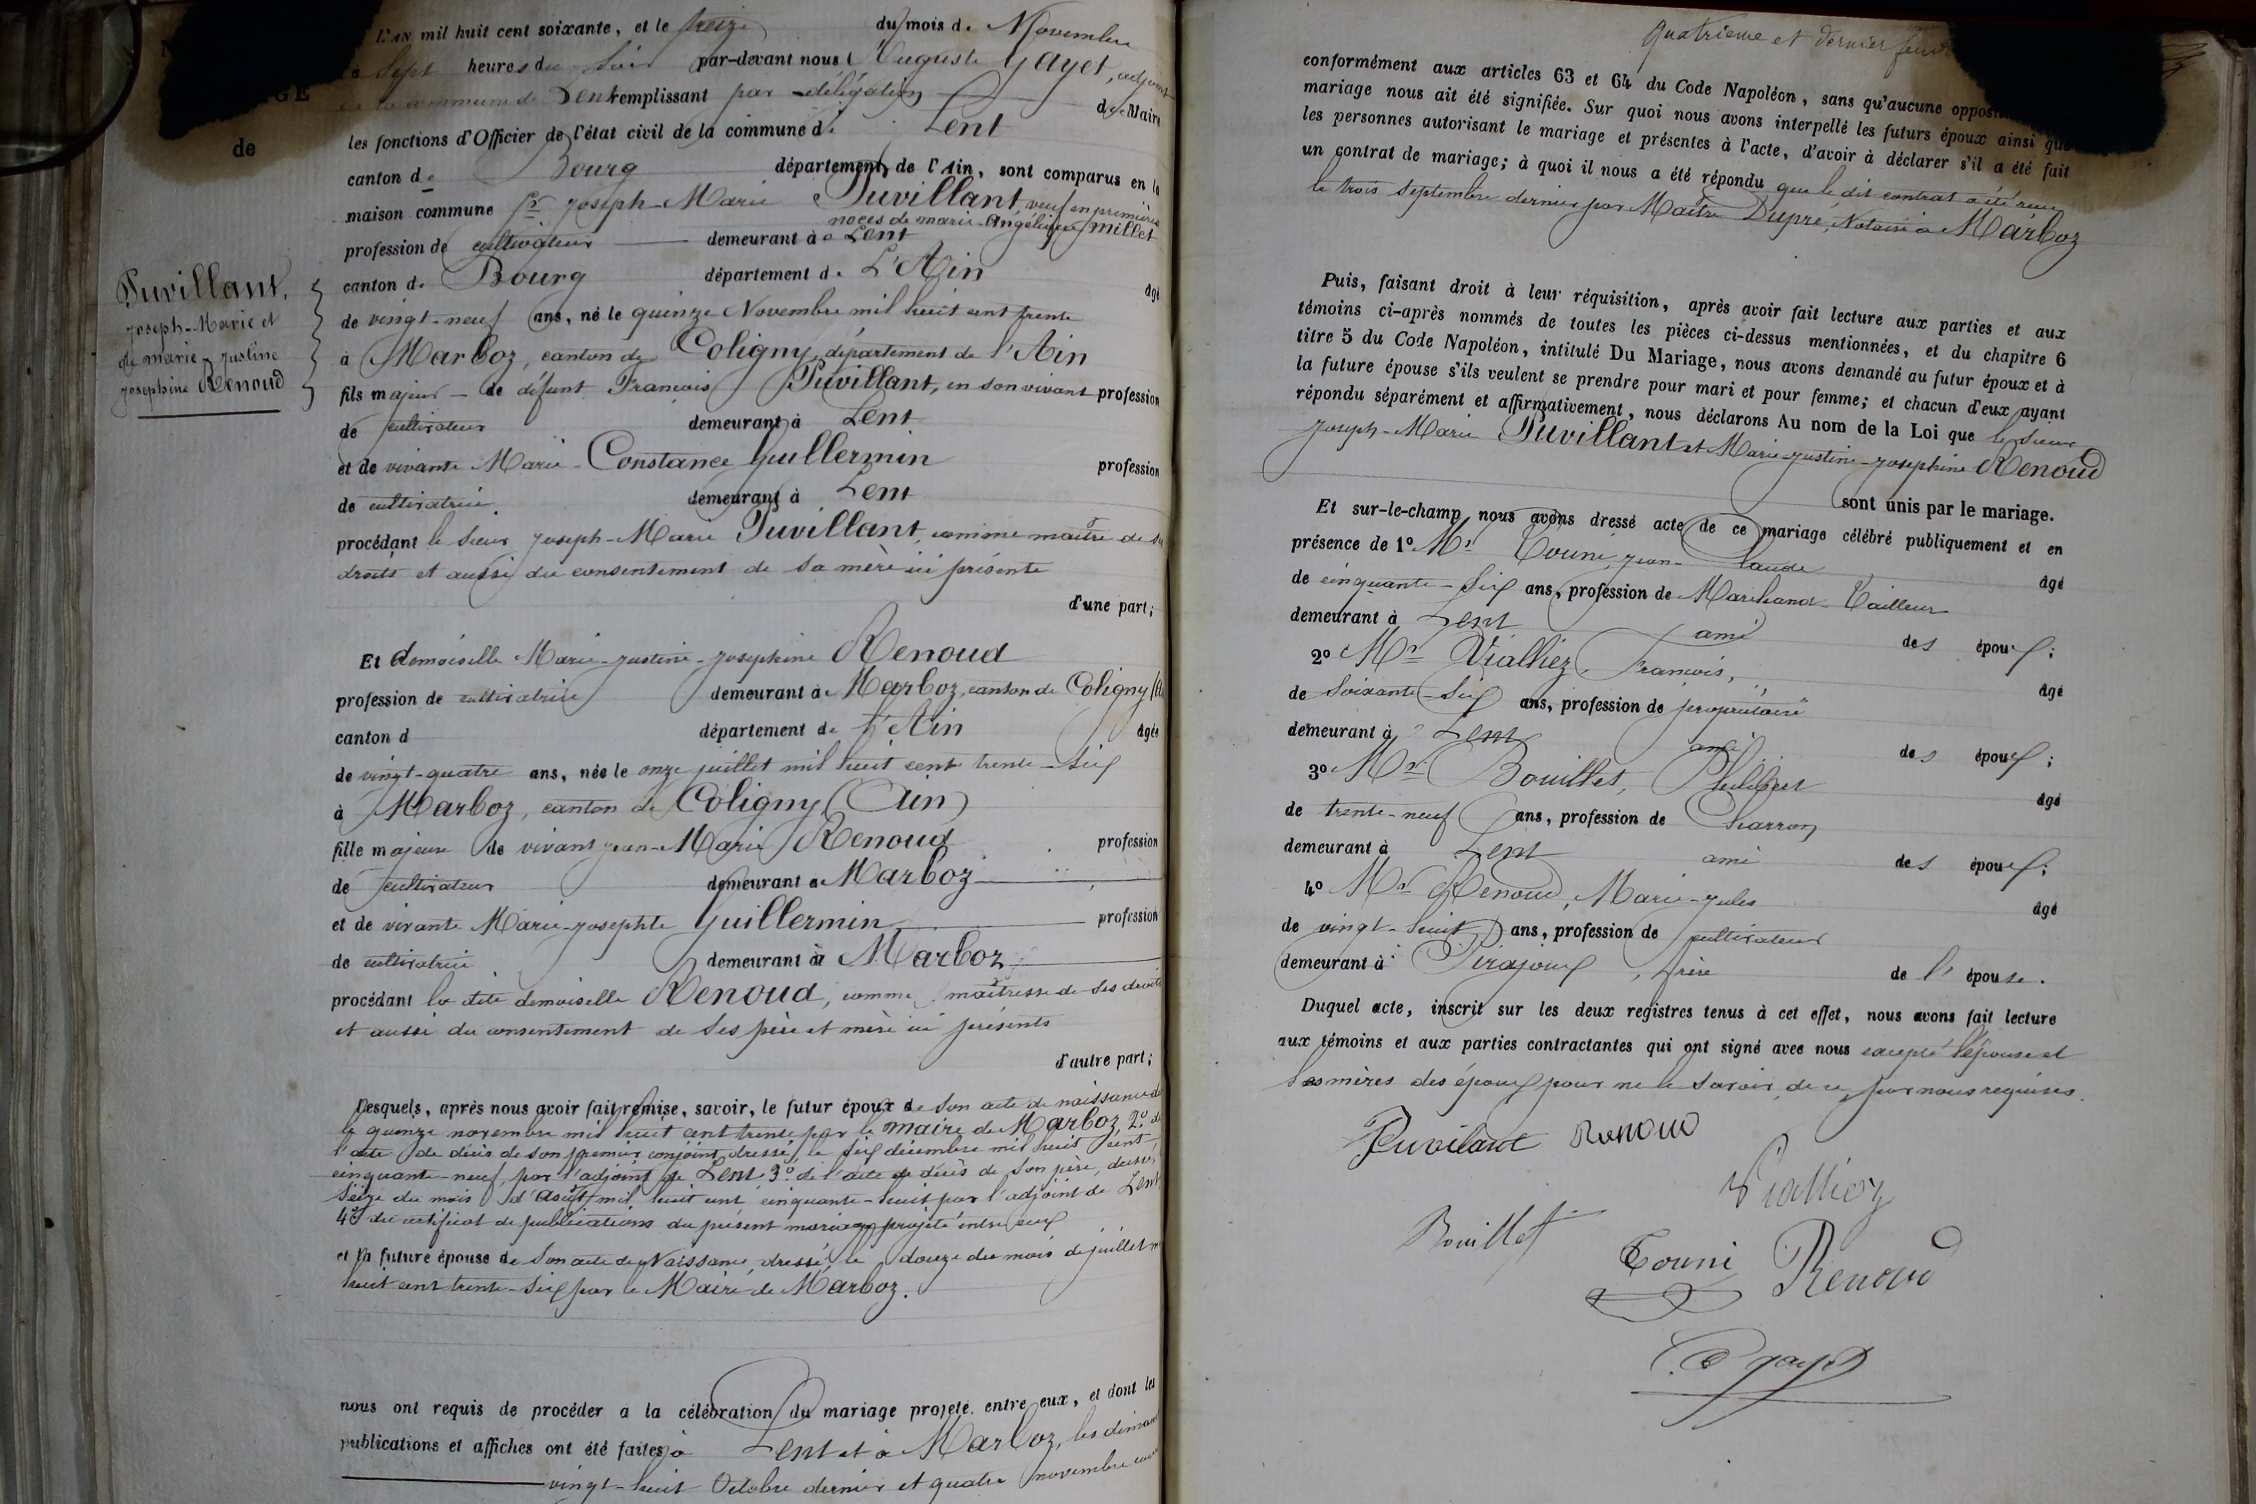 L'AN mil huit cent soixante, et le treize du mois de Novembre
à sept heures du soir par-devant nous Auguste Gayet, adjoint
de la commune de Lent remplissant par délégation de Maire
les fonctions d'Officier de l'état civil de la commune de Lent
de
canton de Bourg département de l'Ain, sont comparus en la
maison commune Sr Joseph-Marie Puvillant veuf en premières
noces de marie-Angélique Millet
profession de cultivateur demeurant à Lent
canton de Bourg département de L'Ain
âgé
de vingt-neuf ans, né le quinze Novembre mil huit cent trente
à Marboz, canton de Coligny, département de l'Ain
fils majeur de défunt François Puvillant, en son vivant profession
de cultivateur demeurant à Lent
et de vivante Marie-Constance Guillermin profession
de cultivatrice demeurant à Lent
procédant le sieur Joseph-Marie Puvillant, comme maître de ses
droits et aussi du consentement de sa mère ici présente
d'une part;
Puvillant,
Joseph-Marie et
de marie-Justine
Josephine Renoud
Et demoiselle Marie-Justine-Josephine Renoud
profession de cultivatrice demeurant à Marboz, canton de Coligny
canton d département de L'Ain âgée
de vingt-quatre ans, née le onze juillet mil huit cent trente-six
à Marboz, canton de Coligny (Ain)
fille majeure de vivant Jean-Marie Renoud profession
de cultivateur demeurant à Marboz
et de vivante Marie-Josephte Guillermin profession
de cultivatrice demeurant à Marboz
procédant la dite demoiselle Renoud, comme maîtresse de ses droits
et aussi du consentement de ses père et mère ici présents
d'autre part;
Lesquels, après nous avoir fait remise, savoir, le futur époux de son acte de naissance
le quinze novembre mil huit cent trente par le maire de Marboz, 2º de
l'acte de décès de son premier conjoint, dressé le six décembre mil huit cent
cinquante-neuf, par l'adjoint de Lent 3º de l'acte de décès de son père, dressé
seize du mois d'Août mil huit cent cinquante-huit par l'adjoint de Lent
4º du certificat de publications du présent mariage projeté entre eux
et la future épouse de son acte de Naissance, dressé le douze du mois de juillet
huit cent trente-six par le Maire de Marboz.
nous ont requis de procéder a la célébration du mariage projeté entre eux, et dont les
publications et affiches ont été faites à Lent et à Marboz, les dimanches
vingt-huit Octobre dernier et quatre novembre
quatrième et dernier
conformément aux articles 63 et 64 du Code Napoléon, sans qu'aucune
mariage nous ait été signifiée. Sur quoi nous avons interpellé les futurs époux ainsi que
les personnes autorisant le mariage et présentes à l'acte, d'avoir à déclarer s'il a été fait
un contrat de mariage; à quoi il nous a été répondu que le dit contrat a été reçu
le trois septembre dernier par Maître Dupré, Notaire à Marboz
Puis, faisant droit à leur réquisition, après avoir fait lecture aux parties et aux
témoins ci-après nommés de toutes les pièces ci-dessus mentionnées, et du chapitre 6
titre 5 du Code Napoléon, intitulé Du Mariage, nous avons demandé au futur époux et à
la future épouse s'ils veulent se prendre pour mari et pour femme; et chacun d'eux ayant
répondu séparément et affirmativement, nous déclarons Au nom de la Loi que le sieur
Joseph-Marie Puvillant et Marie-Justine-Josephine Renoud
sont unis par le mariage.
Et sur-le-champ nous avons dressé acte de ce mariage célébré publiquement et en
présence de 1º Mr Touni, Jean-Claude
âgé
de cinquante-six ans, profession de Marchand-Tailleur
demeurant à Lent ami des époux;
2º Mr Vialliez, François,
âgé
de soixante-six ans, profession de propriétaire
demeurant à Lent ami des époux;
3º Mr Bouillet, Philibert
âgé
de trente-neuf ans, profession de Charron
demeurant à Lent ami des époux;
4º Mr Renoud, Marie-Jules
âgé
de vingt-huit ans, profession de cultivateur
demeurant à Pirajoux, frère de l'épouse.
Duquel acte, inscrit sur les deux registres tenus à cet effet, nous avons fait lecture
aux témoins et aux parties contractantes qui ont signé avec nous excepté l'épouse et
les mères des époux pour ne le savoir, de ce par nous requises.
Puvilant Renoud
Vialliez
Bouillet
Touni Renoud
Gayet